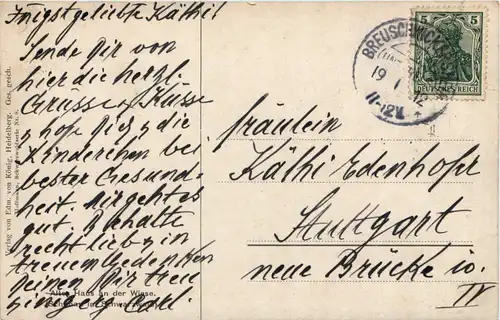 Innigstgeliebte Käthi!
Sende Dir von
hier die herzl.
Grüsse u. Küsse
hoffe Dich u. die
Kinderchen bei
bester Gesund-
heit. Mir geht es
gut. Behalte
recht lieb in
treuem Gedenken
Deinen Dir treu
Carl.
Altes Haus an der Wiese.
Verlag von Edm. von König, Heidelberg. Ges. gesch.
BREUSCHWICKERSHEIM
19 1 12
11-12V
5 5
DEUTSCHES REICH
Fräulein
Käthi Edenhofer
Stuttgart
neue Brücke 10.
IV